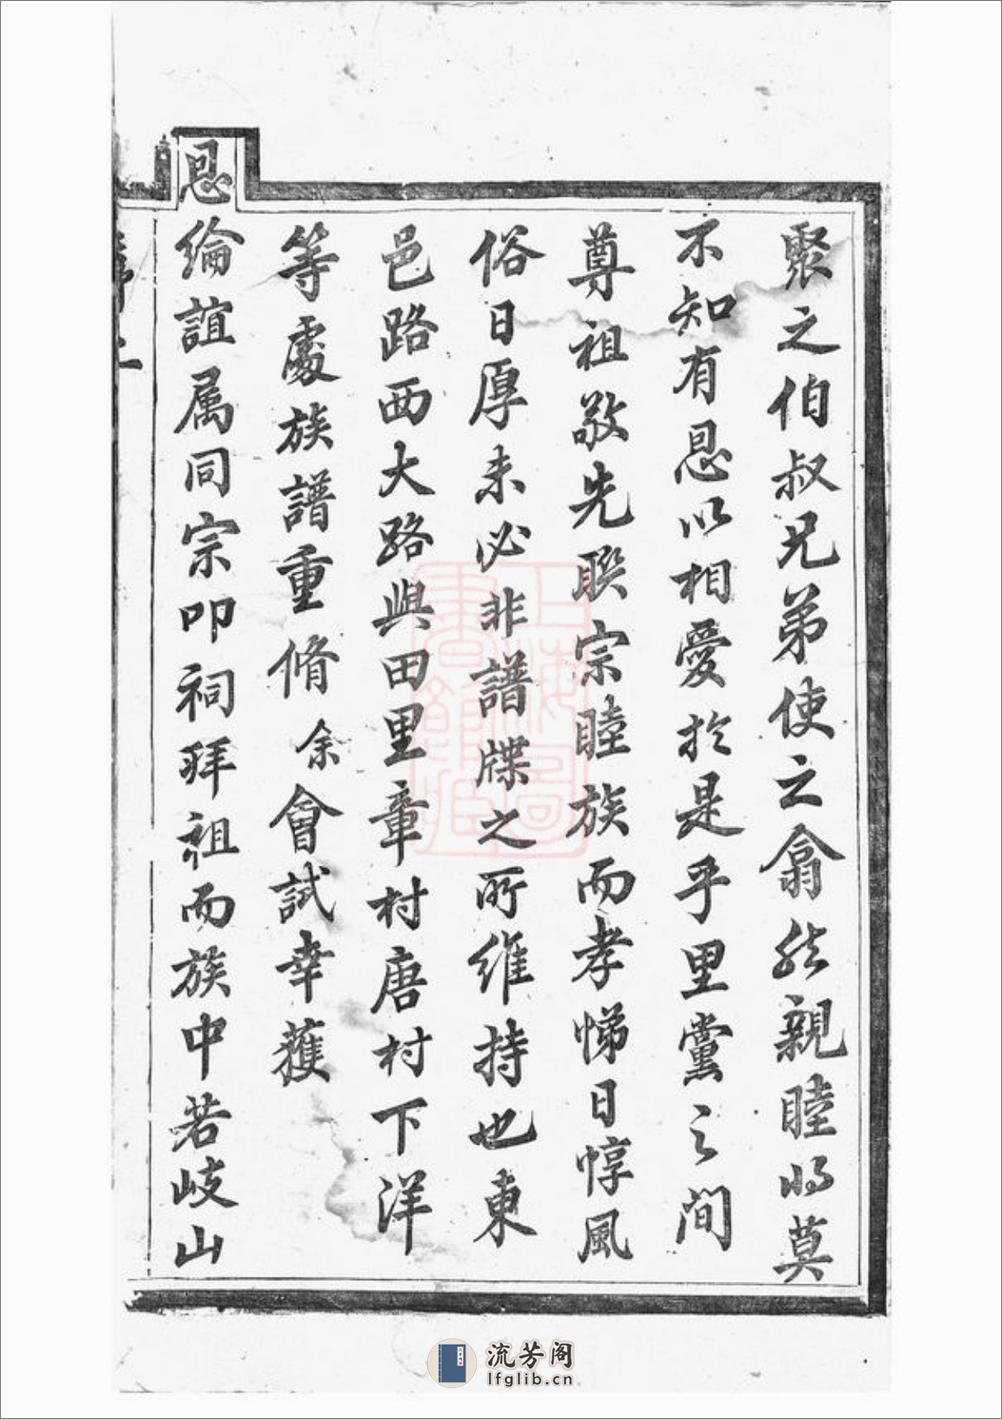 聚之伯叔兄弟使之翕然親睦將莫
不知有恩以相愛於是乎里黨之間
尊祖敬先聯宗睦族而孝悌日惇風
俗日厚未必非譜牒之所維持也東
邑路西大路與田里章村唐村下洋
等處族譜重脩余會試幸獲
恩綸誼属同宗叩祠拜祖而族中若岐山
上海圖書館藏
流芳阁
lfglib.cn